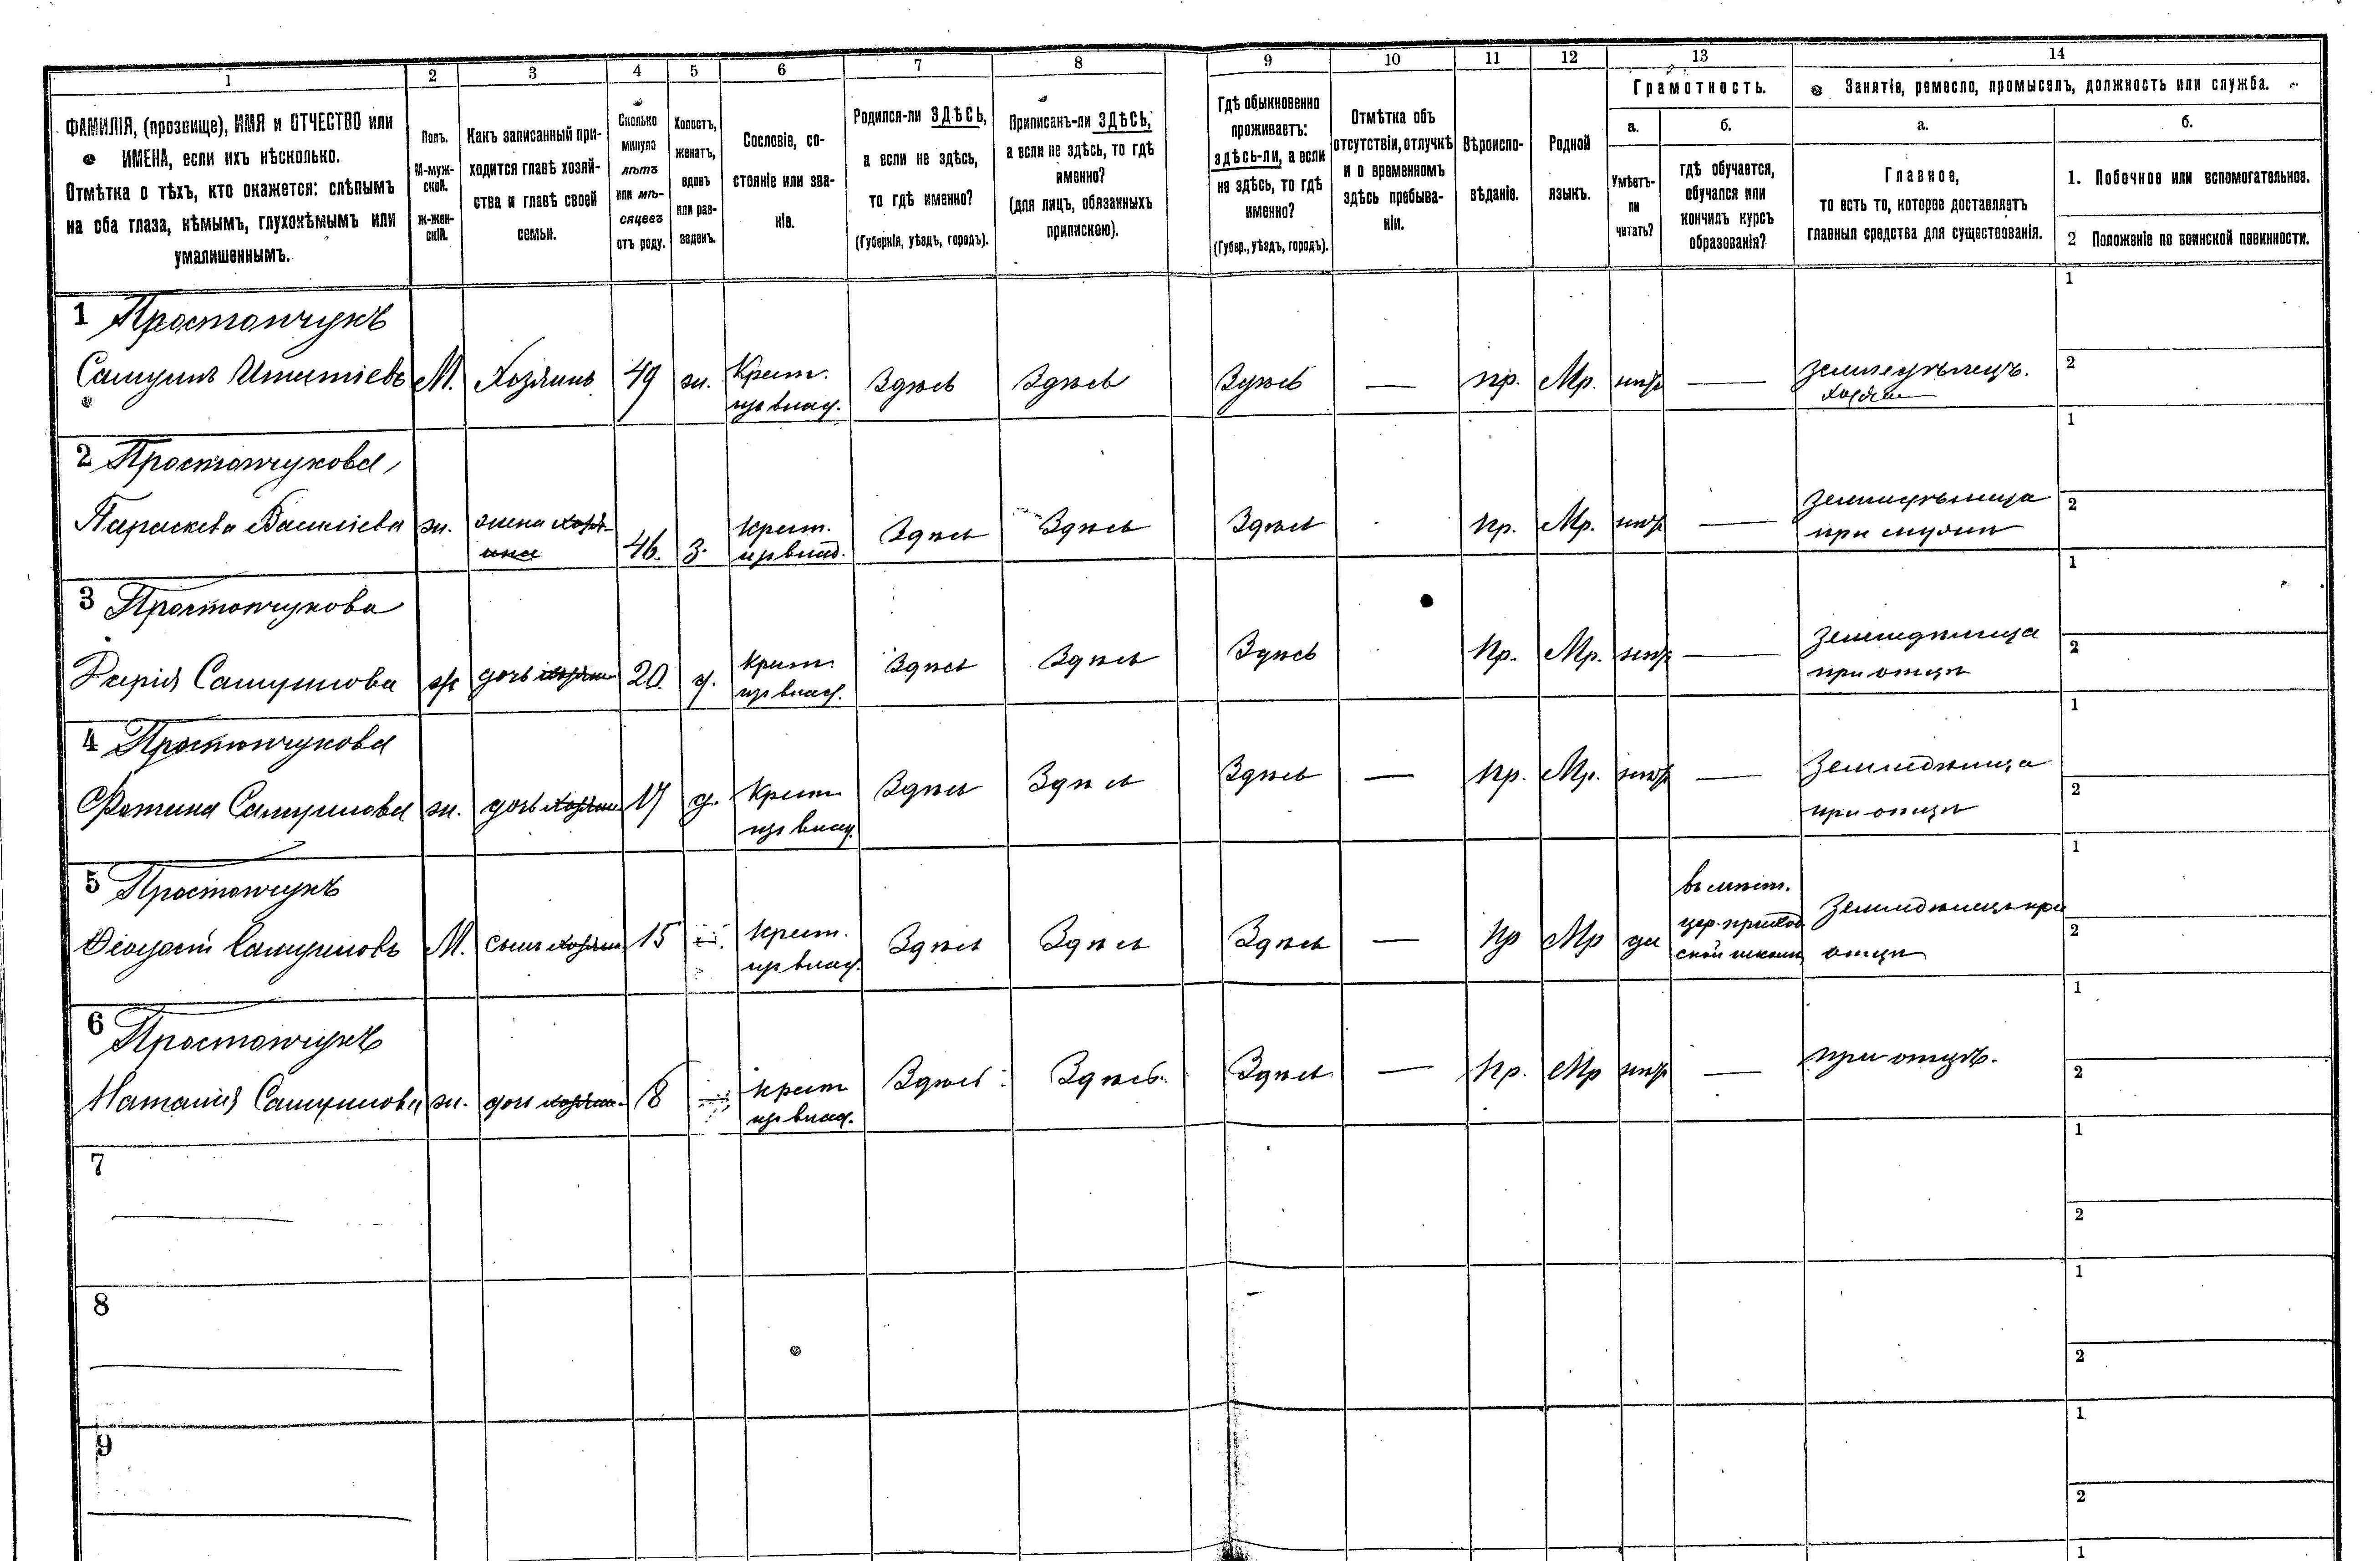 1 2 3 4 5 6 7 8 9 10 11 12 13 14
ФАМИЛІЯ, (прозвище), ИМЯ и ОТЧЕСТВО или
ИМЕНА, если ихъ нѣсколько.
Отмѣтка о тѣхъ, кто окажется: слѣпымъ
на оба глаза, нѣмымъ, глухонѣмымъ или
умалишеннымъ.
Полъ.
М-муж-
ской.
ж-жен-
скій.
Какъ записанный при-
ходится главѣ хозяй-
ства и главѣ своей
семьи.
Сколько
минуло
лѣтъ
или мѣ-
сяцевъ
отъ роду.
Холостъ,
женатъ,
вдовъ
или раз-
веденъ.
Сословіе, со-
стояніе или зва-
ніе.
Родился-ли ЗДѢСЬ,
а если не здѣсь,
то гдѣ именно?
(Губернія, уѣздъ, городъ).
Приписанъ-ли ЗДѢСЬ,
а если не здѣсь, то гдѣ
именно?
(для лицъ, обязанныхъ
припискою).
Гдѣ обыкновенно
проживаетъ:
здѣсь-ли, а если
не здѣсь, то гдѣ
именно?
(Губер., уѣздъ, городъ).
Отмѣтка объ
отсутствіи, отлучкѣ
и о временномъ
здѣсь пребыва-
ніи.
Вѣроиспо-
вѣданіе.
Родной
языкъ.
Грамотность.
а.
Умѣетъ-
ли
читать?
б.
гдѣ обучается,
обучался или
кончилъ курсъ
образованія?
Занятіе, ремесло, промыселъ, должность или служба.
а.
Главное,
то есть то, которое доставляетъ
главныя средства для существованія.
б.
1. Побочное или вспомогательное.
2 Положеніе по воинской повинности.
1 Простопчукъ
Самуилъ М. Хозяинъ 49 ж. Крест.
изъ влад. Здѣсь Здѣсь Здѣсь — пр. Мр. нѣтъ — земледѣлецъ.
хозяин
1
2
2 Простопчукова
Параскева Васильева ж. жена хозя-
ина 46. з. крест.
изъ влад. Здѣсь Здѣсь Здѣсь пр. Мр. нѣтъ — земледѣлица
при мужѣ
1
2
3 Простопчукова
Дарія Самуилова ж дочь хозяин 20. д. крест
изъ влад. Здѣсь Здѣсь Здѣсь пр. Мр. нѣтъ — земледѣлица
при отцѣ
1
2
4 Простопчукова
Фотина Самуилова ж. дочь хозяин 17 д. крест
изъ влад. Здѣсь Здѣсь Здѣсь — пр. Мр. нѣтъ — земледѣлица
при отцѣ
1
2
5 Простопчукъ
Самуиловъ М. сынъ хозяин 15 крест.
изъ влад. Здѣсь Здѣсь Здѣсь — пр Мр да
въ мѣст.
цер. приход
ской школѣ
Земледѣлецъ при
отцѣ
1
2
6 Простопчукъ
Наталія Самуилова ж. дочь хозяин 8 — крест
изъ влад. Здѣсь Здѣсь Здѣсь — пр. Мр нѣтъ — при отцѣ.
1
2
7
1
2
8
1
2
9
1
2
1